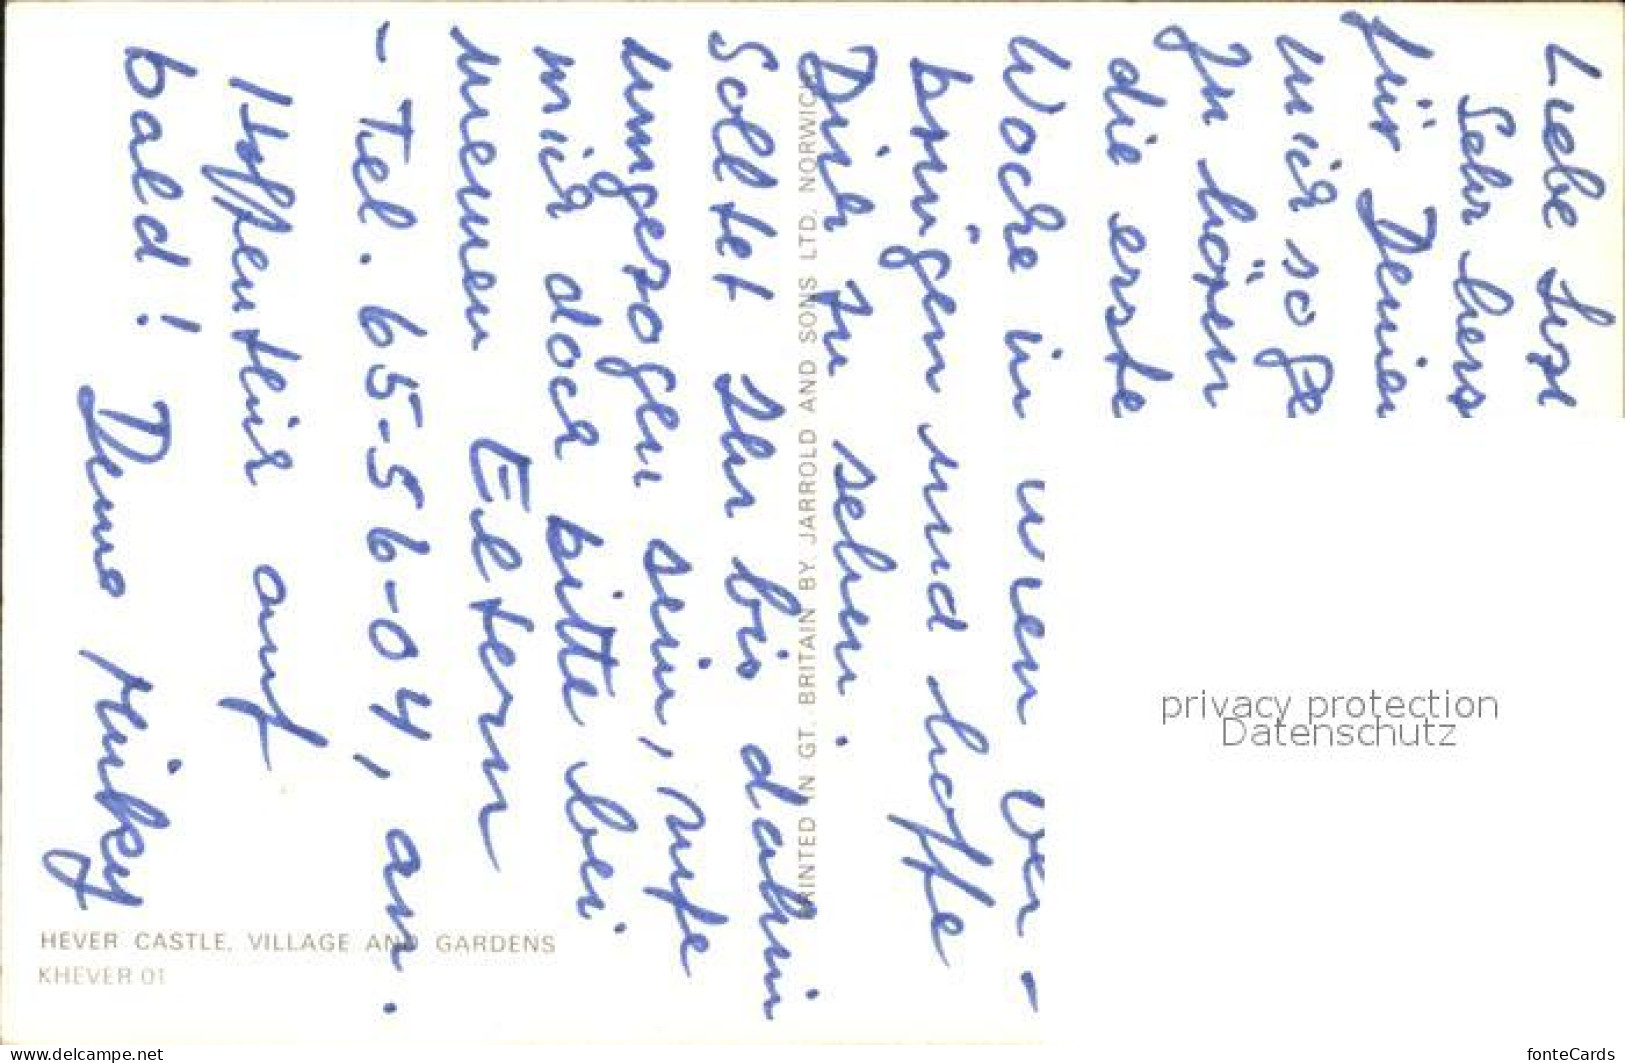 Liebe
Sehr herz
für Deine
mich so ge
zu hören
die erste
Woche in Wien ver-
bringen und hoffe
Dich zu sehen.
Solltet Ihr bis dahin
umgezogen sein, rufe
mich doch bitte bei
meinen Eltern
- Tel. 65-56-04, an.
Hoffentlich auf
bald! Deine Minky
PRINTED IN GT. BRITAIN BY JARROLD AND SONS LTD. NORWICH
HEVER CASTLE, VILLAGE AND GARDENS
KHEVER 01
privacy protection
Datenschutz
www.delcampe.net
fonteCards